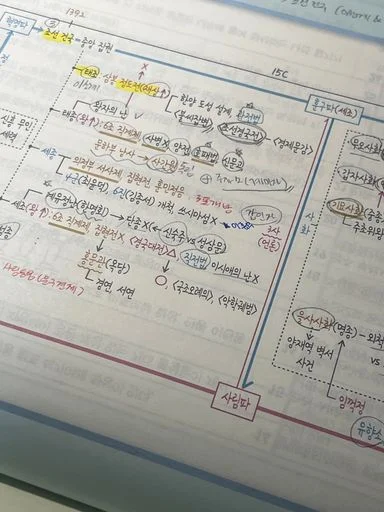 1392
혁명파
조선 건국 = 중앙 집권
15C
훈구파(세조)
태조 상봉 정도전(재상↑)
이성계
X
한양 도성 설계,
<조선경국전>, <경제문감>
왕자의 난
태종(왕↑) : 6조 직계제 사병X 양전 호패법 신문고
사간원 독립
세종
의정부 서사제 집현전 훈민정음
4군(최윤덕), 6진(김종서) 개척 쓰시마섬X
3포개항
세조(왕↑) : 6조 직계제 집현전X <경국대전>△ 직전법 이시애의 난X
계유정난(한명회) → 단종X (← 신숙주 vs 성삼문)
성종
홍문관(옥당)
경연, 서연
○ <국조오례의>, <악학궤범>
3사
(언론)
사화
사림파
무오사화
갑자사화
기묘사화
을사사화(명종) - 외척
vs
양재역 벽서
사건
임꺽정
유향소